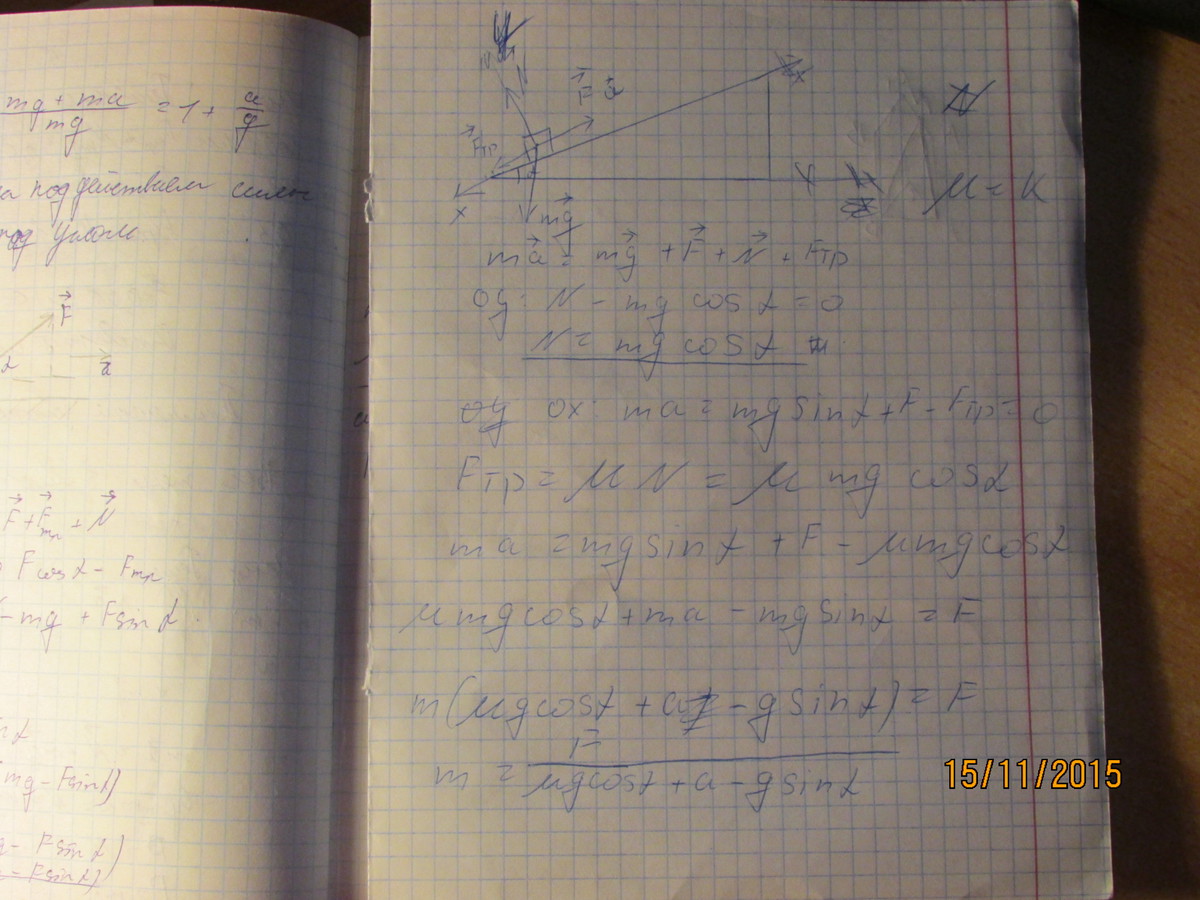 mg + ma / mg = 1 + a/g
под действием силы
под углом
F
α
a
F + Fтр + N
F cos α - Fтр
- mg + F sin α
mg - F sin α)
- F sin α)
- F sin α)
y
N
F a
x
Fтр
x
mg
x
N
μ = k
ma = mg + F + N + Fтр
oy: N - mg cos α = 0
N = mg cos α
oy ox: ma = mg sin α + F - Fтр = 0
Fтр = μ N = μ mg cos α
ma = mg sin α + F - μ mg cos α
μ mg cos α + ma - mg sin α = F
m(μg cos α + a - g sin α) = F
m = F / μg cos α + a - g sin α
15/11/2015